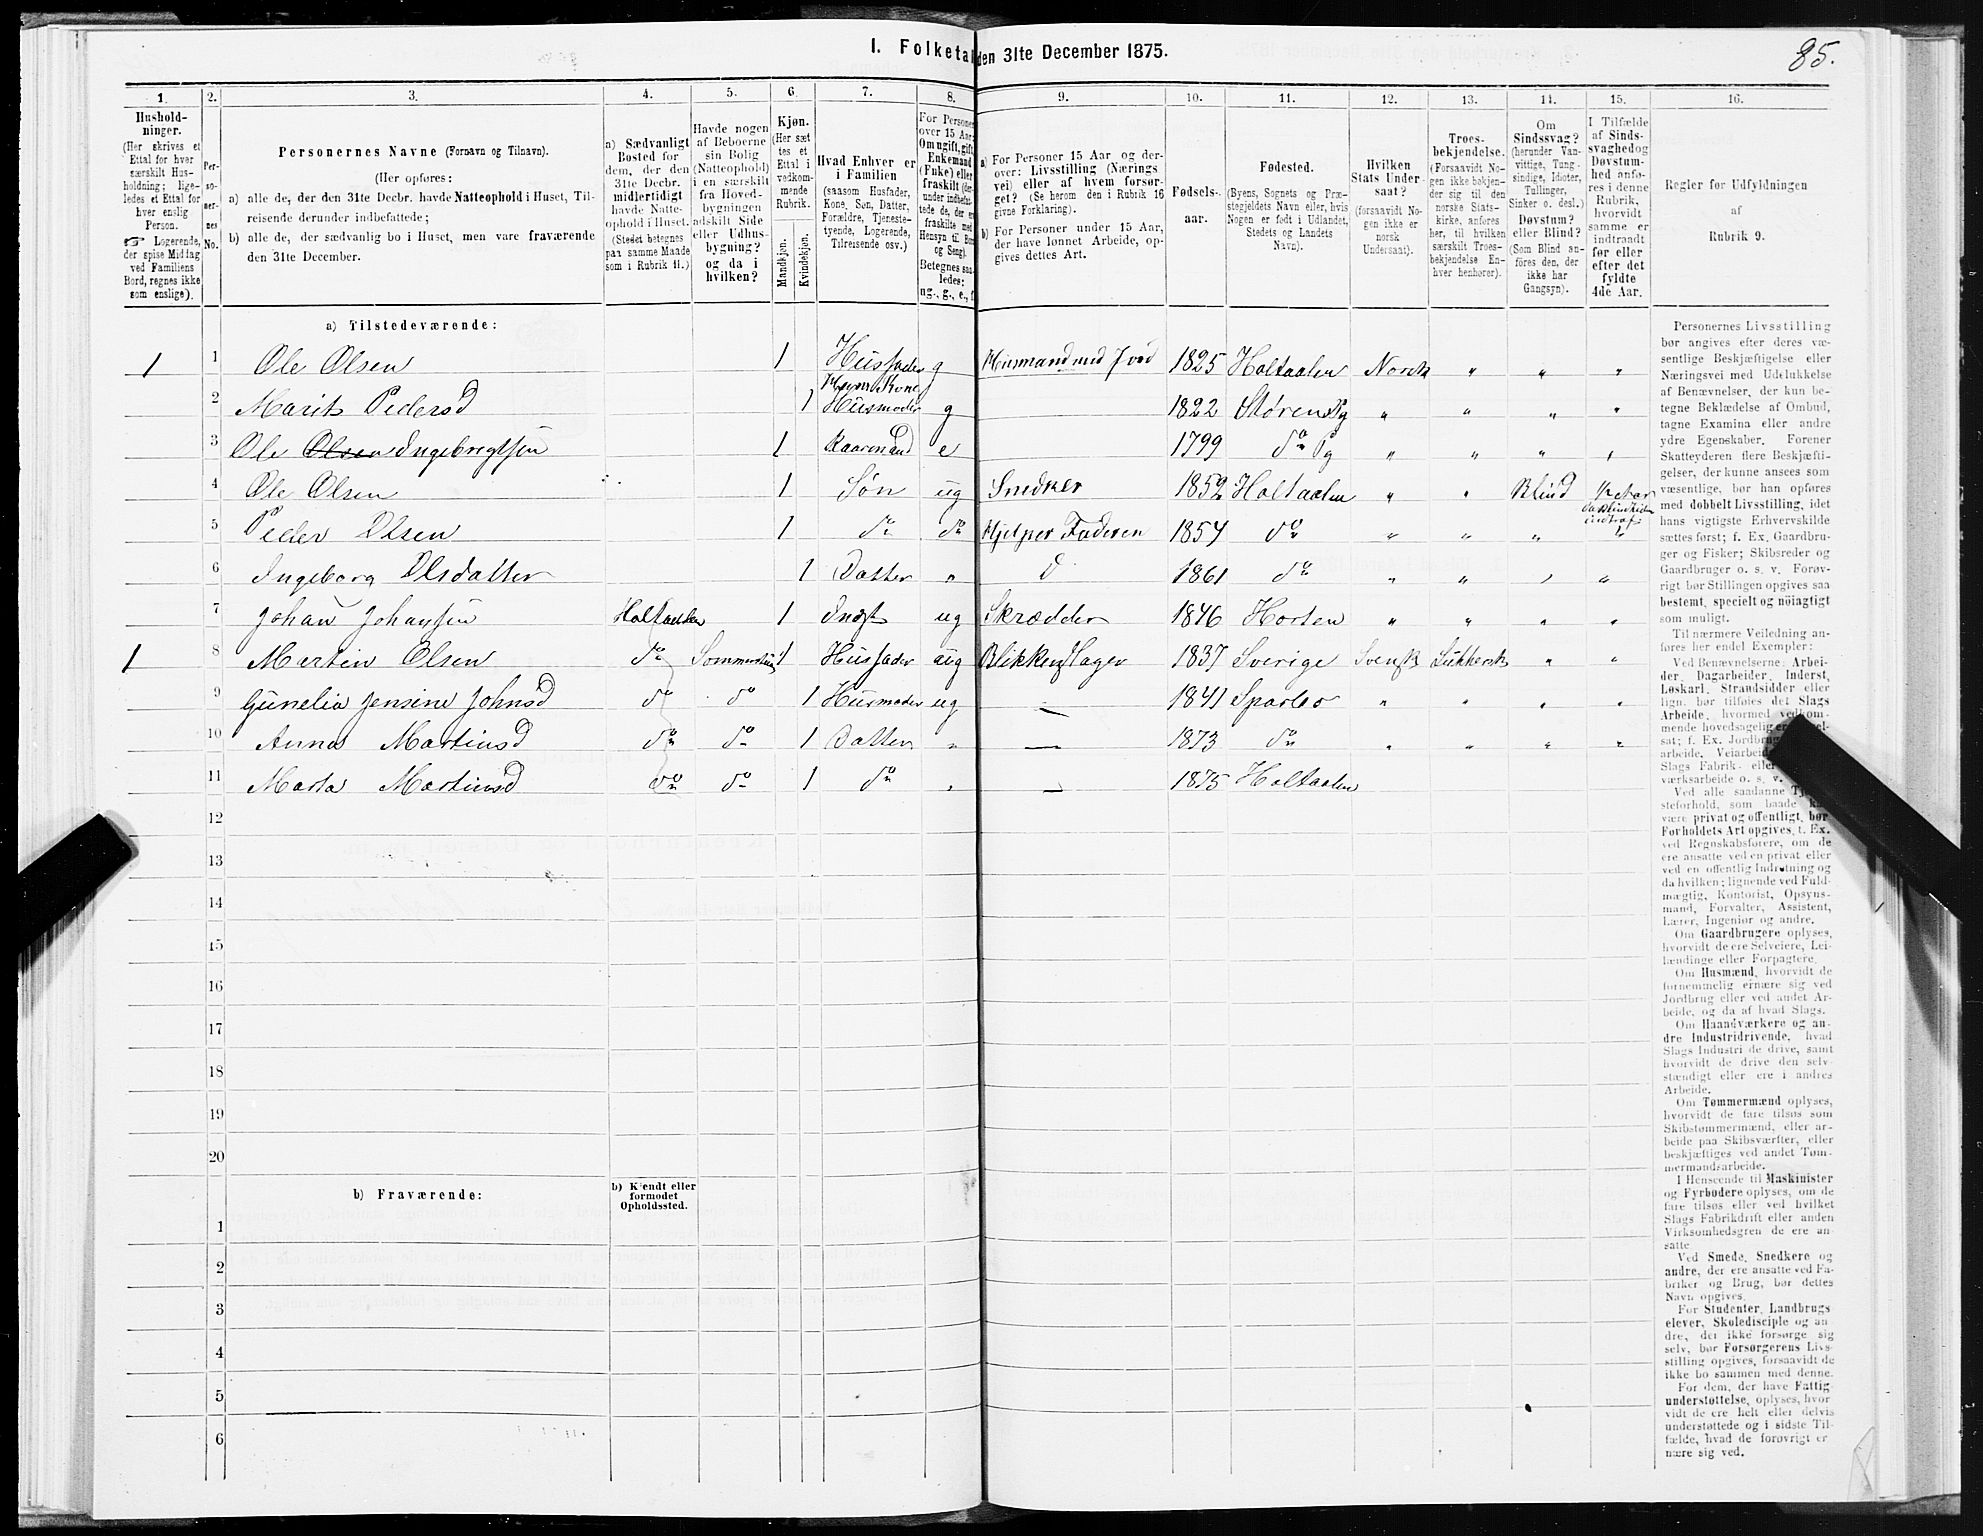 I. Folketal den 31te December 1875.
85.
1. 2. 3. 4. 5. 6. 7. 8. 9. 10. 11. 12. 13. 14. 15. 16.
Husholdninger.
(Her skrives et
Ettal for hver
særskilt Hus-
holdning; lige-
ledes et Ettal for
hver enslig
Person.
☞ Logerende,
der spise Middag
ved Familiens
Bord, regnes ikke
som enslige).
Per-
so-
ner-
nes
No.
Personernes Navne (Fornavn og Tilnavn).
(Her opføres:
a) alle de, der den 31te Decbr. havde Natteophold i Huset, Til-
reisende derunder indbefattede;
b) alle de, der sædvanlig bo i Huset, men vare fraværende
den 31te December.
a) Sædvanligt
Bosted for
dem, der den
31te Decbr.
midlertidigt
havde Natte-
ophold i Huset.
(Stedet betegnes
paa samme Maade
som i Rubrik 11.)
Havde nogen
af Beboerne
sin Bolig
(Natteophold)
i en særskilt
fra Hoved-
bygningen
adskilt Side
eller Udhus-
bygning?
og da i
hvilken?
Kjøn.
(Her sæt-
tes et
Ettal i
vedkom-
mende
Rubrik.
Mandkjøn.
Kvindekjøn.
Hvad Enhver er
i Familien
(saasom Husfader,
Kone, Søn, Datter,
Forældre, Tjeneste-
tyende, Logerende,
Tilreisende osv.)
For Personer
over 15 Aar:
Om ugift, gift,
Enkemand
(Enke) eller
fraskilt
Betegnes saa-
ledes:
ug., g., e., f.
a) For Personer 15 Aar og der-
over: Livsstilling (Nærings-
vei) eller af hvem forsør-
get? (Se herom den i Rubrik 16
givne Forklaring).
b) For Personer under 15 Aar,
der have lønnet Arbeide, op-
gives dettes Art.
Fødsels-
aar.
Fødested.
(Byens, Sognets og Præ-
stegjeldets Navn eller, hvis
Nogen er født i Udlandet,
Stedets og Landets
Navn).
Hvilken
Stats Under-
saat?
(forsaavidt No-
gen ikke er
norsk
Undersaat).
Troes-
bekjendelse.
(Forsaavidt No-
gen ikke bekjen-
der sig til den
norske Stats-
kirke, anføres
her, til hvilken
særskilt Troes-
bekjendelse En-
hver henhører).
Om
Sindssvag?
(herunder Van-
vittige, Tung-
sindige, Idioter,
Tullinger,
Sinker o. desl.)
Døvstum?
eller Blind?
(Som Blind an-
føres den, der
ikke har
Gangsyn).
I Tilfælde
af Sinds-
svaghed og
Døvstum-
hed anfø-
res i denne
Rubrik,
hvorvidt
samme er
indtraadt
før eller
efter det
fyldte
4de Aar.
Regler for Udfyldningen
af
Rubrik 9.
a) Tilstedeværende:
1 1 Ole Olsen 1 Husfader g Husmand med Jord 1825 Holtaalen Norsk " " "
Kone
2 Marit Pedersd 1 Husmoder g 1822 Støren Pg " " " "
3 Ole Olsen Ingebregtsen 1 Kaarmand e 1799 do Pg " " " "
4 Ole Olsen 1 Søn ug Snedker 1852 Holtaalen " " Blind
5 Peder Olsen 1 do do Hjelper Faderen 1854 do " " " "
6 Ingeborg Olsdatter 1 Datter " 1861 do " " " "
7 Johan Johansen Holtaalen 1 Indst ug Skrædder 1846 Horten " " " "
1 8 Martin Olsen do 1 Husfader ug Blikkenslager 1837 Sverige Svensk Luthersk " "
9 Gunelia Jensine Johnsd do do 1 Husmoder ug — 1841 Sparbo " " " "
10 Anna Martinsd do do 1 Datter " — 1873 do " " " "
11 Marta Martinsd do do 1 do " — 1875 Holtaalen
12
13
14
15
16
17
18
19
20
b) Fraværende:
b) Kjendt eller
formodet
Opholdssted.
1
2
3
4
5
6
Personernes Livsstilling
bør angives efter deres væ-
sentlige Beskjæftigelse eller
Næringsvei med Udelukkelse
af Benævnelser, der kun be-
tegne Beklædelse af Ombud,
tagne Examina eller andre
ydre Egenskaber. Forener
Skatteyderen flere Beskjæfti-
gelser, der kunne ansees som
væsentlige, bør han opføres
med dobbelt Livsstilling, idet
hans vigtigste Erhvervskilde
sættes først; f. Ex. Gaardbru-
ger og Fisker; Skibsreder og
Gaardbruger o. s. v. Forøv-
rigt bør Stillingen opgives saa
bestemt, specielt og nøiagtigt
som muligt.
Til nærmere Veiledning an-
føres her endel Exempler:
Ved Benævnelserne: Arbei-
der, Dagarbeider, Inderst,
Løskarl, Strandsidder eller
lign. bør tilføies det Slags
Arbeide, hvormed vedkom-
mende hovedsagelig er
sat; f. Ex. Jordbrug
arbeide, Veiarbeide
Slags Fabrik- eller
værksarbeide o. s. v.
Ved alle saadanne
steforhold, som baade
være privat og offentligt, bør
Forholdets Art opgives, t. Ex.
ved Regnskabsførere, om de
ere ansatte ved en privat eller
ved en offentlig Indretning og
da hvilken; lignende ved Fuld-
mægtig, Kontorist, Opsyns-
mand, Forvalter, Assistent,
Lærer, Ingeniør og andre.
Om Gaardbrugere oplyses,
hvorvidt de ere Selveiere, Lei-
lændinge eller Forpagtere.
Om Husmænd, hvorvidt de
fornemmelig ernære sig ved
Jordbrug eller ved andet Ar-
beide, og da af hvad Slags.
Om Haandværkere og an-
dre Industridrivende, hvad
Slags Industri de drive, samt
hvorvidt de drive den selv-
stændigt eller ere i andres
Arbeide.
Om Tømmermænd oplyses,
hvorvidt de fare tilsøs som
Skibstømmermænd, eller ar-
beide paa Skibsværfter, eller
beskjæftiges ved andet Tøm-
mermandsarbeide.
I Henseende til Maskinister
og Fyrbødere oplyses, om de
fare tilsøs eller ved hvilket
Slags Fabrikdrift eller anden
Virksomhedsgren de ere an-
satte
Ved Smede, Snedkere og
andre, der ere ansatte ved Fa-
briker og Brug, bør dettes
Navn opgives.
For Studenter, Landbrugs-
elever, Skoledisciple og an-
dre, der ikke forsørge sig
selv, bør Forsørgerens Livs-
stilling opgives, forsaavidt de
ikke bo sammen med denne.
For dem, der have Fattig-
understøttelse, oplyses, hvor-
vidt de ere helt eller delvis
understøttede og i sidste Til-
fælde, hvad de forøvrigt er-
nære sig ved.